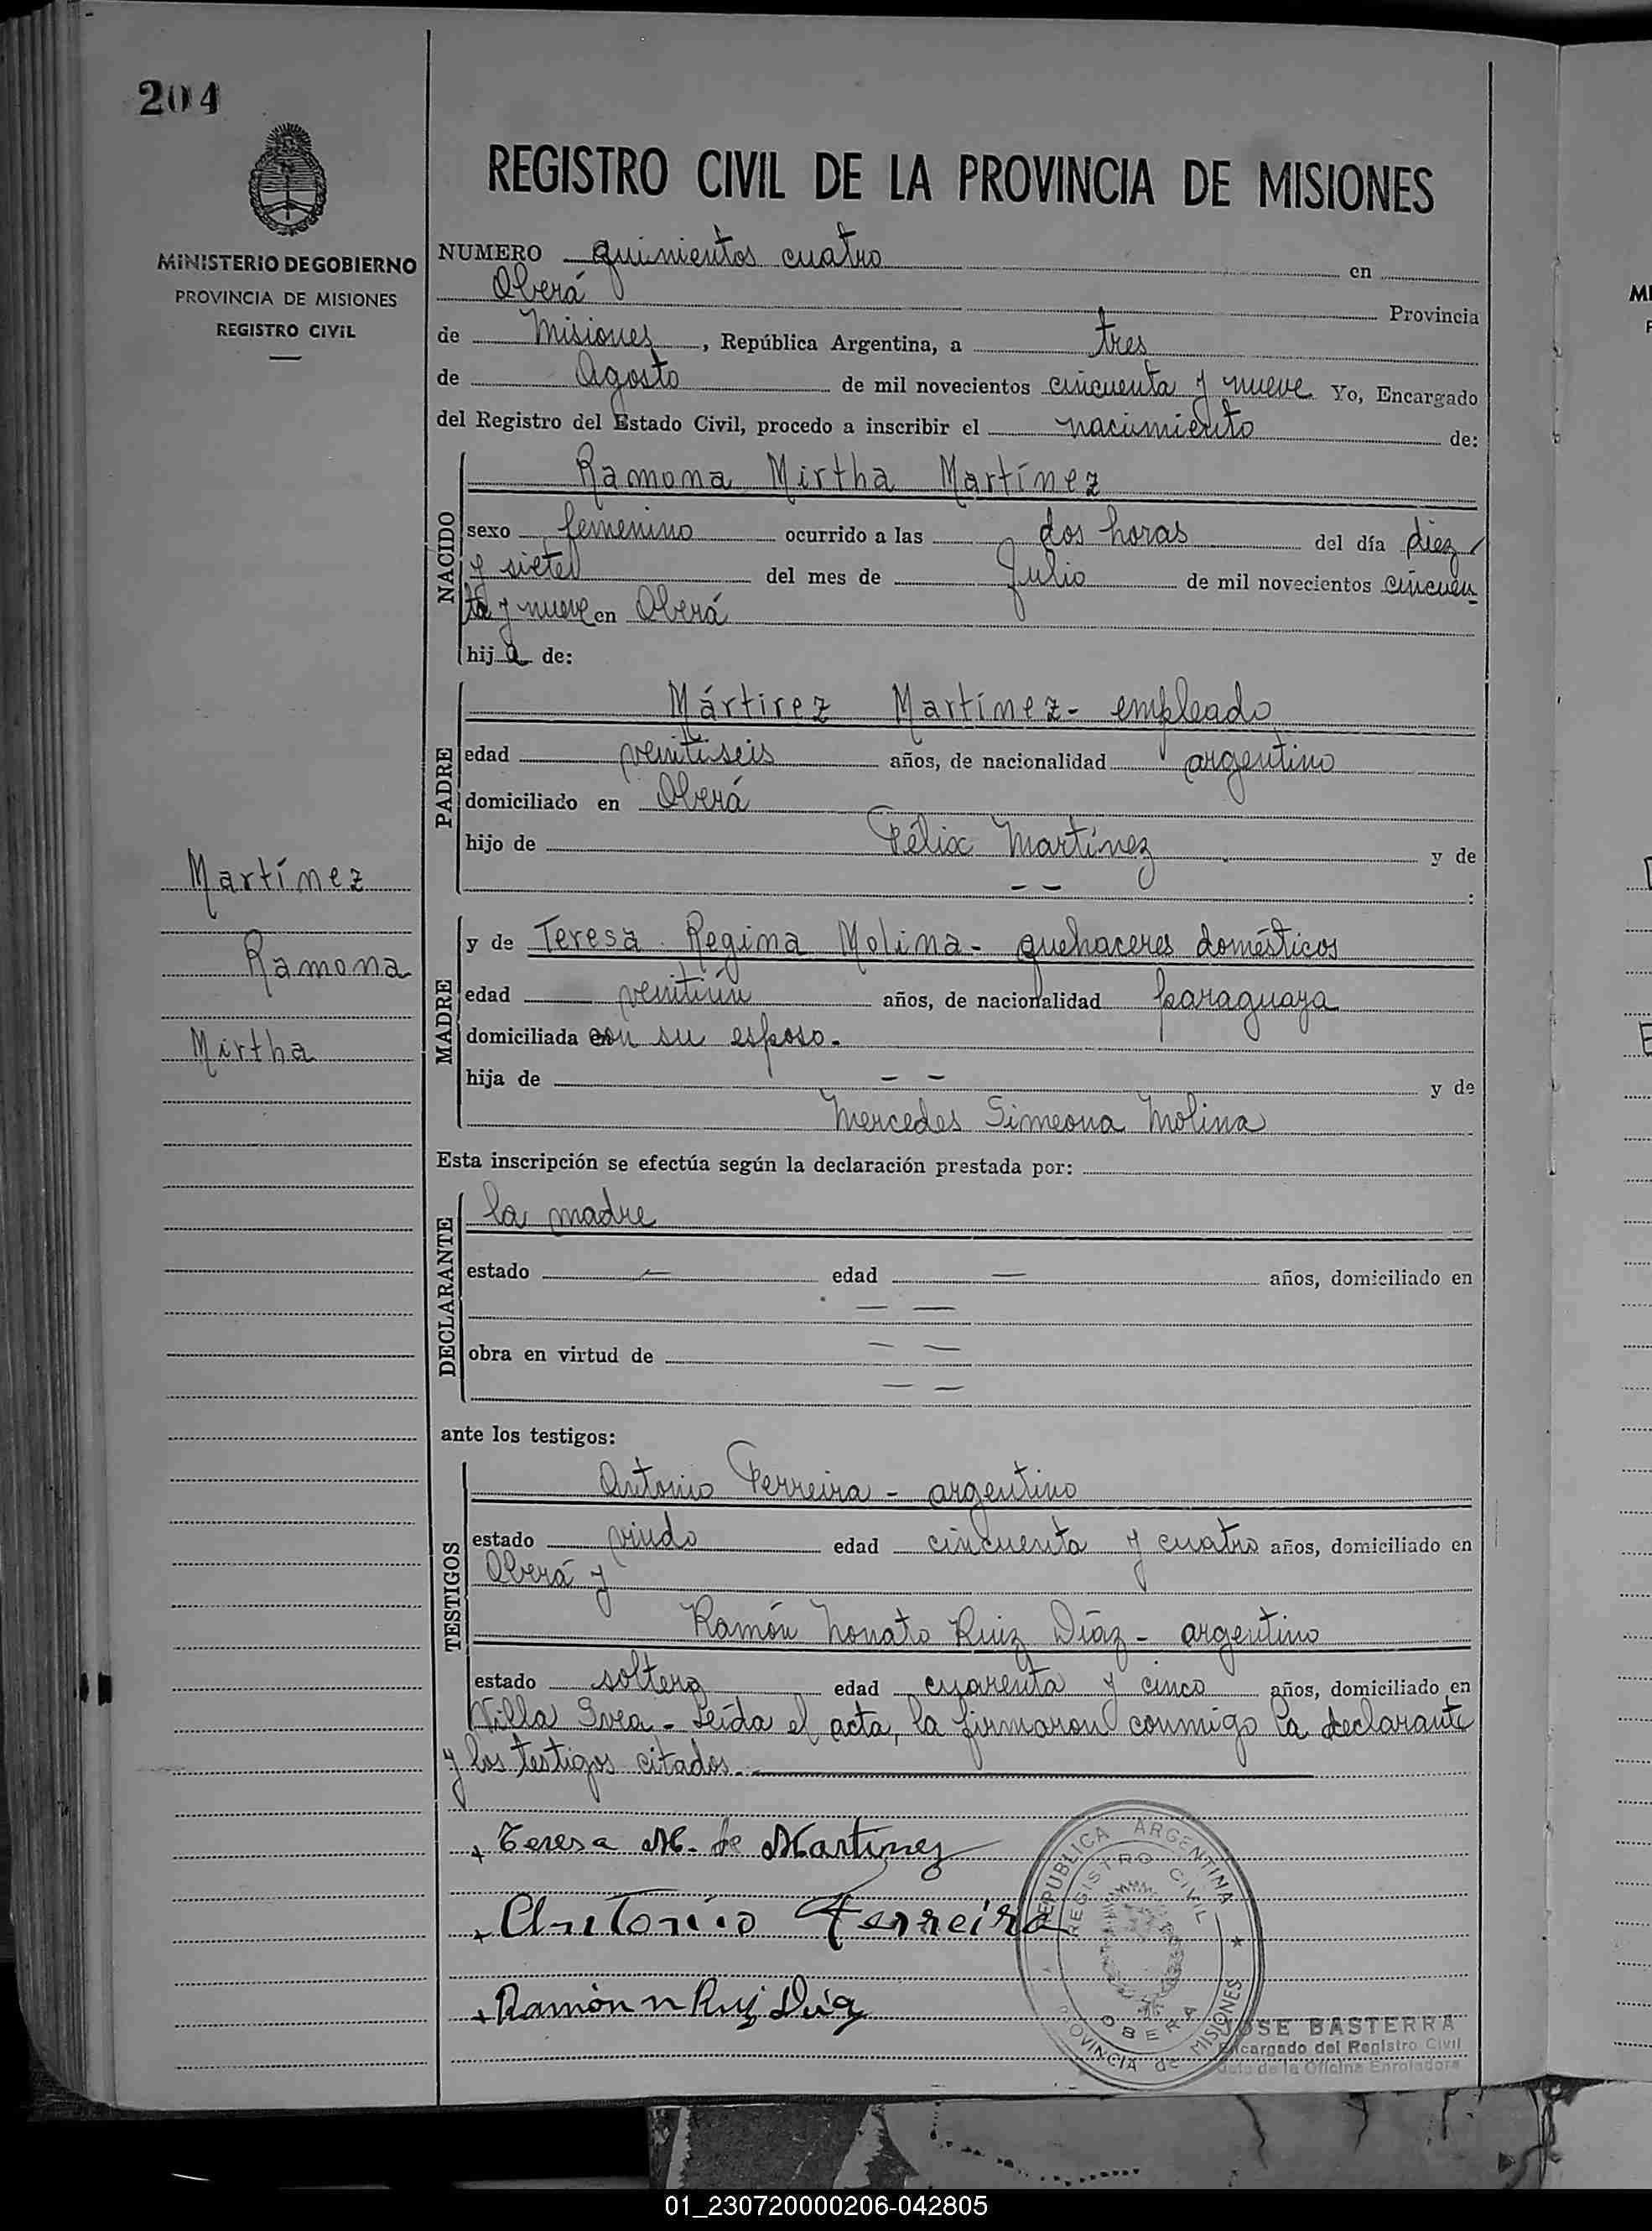 204
MINISTERIO DE GOBIERNO
PROVINCIA DE MISIONES
REGISTRO CIVIL
REGISTRO CIVIL DE LA PROVINCIA DE MISIONES
NUMERO quinientos cuatro en
Oberá Provincia
de Misiones, República Argentina, a tres
de Agosto de mil novecientos cincuenta y nueve Yo, Encargado
del Registro del Estado Civil, procedo a inscribir el nacimiento de:
NACIDO
Ramona Mirtha Martínez
sexo femenino ocurrido a las dos horas del día diez
y siete del mes de Julio de mil novecientos cincuen
ta y nueve en Oberá
hija de:
PADRE
Mártirez Martínez - empleado
edad veintiseis años, de nacionalidad argentino
domiciliado en Oberá
hijo de Félix Martínez y de
— — :
Martínez
Ramona
Mirtha
MADRE
y de Teresa Regina Molina - quehaceres domésticos
edad veintiún años, de nacionalidad paraguaya
domiciliada con su esposo.-
hija de — — y de
Mercedes Simeona Molina
Esta inscripción se efectúa según la declaración prestada por:
DECLARANTE
la madre
estado — edad — años, domiciliado en
— —
obra en virtud de — —
— —
ante los testigos:
TESTIGOS
Antonio Ferreira - argentino
estado viudo edad cincuenta y cuatro años, domiciliado en
Oberá y
Ramón Nonato Ruiz Díaz - argentino
estado soltero edad cuarenta y cinco años, domiciliado en
Villa Svea - Leída el acta, la firmaron conmigo la declarante
y los testigos citados.-
+ Teresa M. de Martinez
+ Antonio Ferreira
+ Ramón n Ruiz Diaz
REPUBLICA ARGENTINA
REGISTRO CIVIL
OBERA
PROVINCIA de MISIONES
JOSE BASTERRA
Encargado del Registro Civil
Jefe de la Oficina Enroladora
01_230720000206-042805